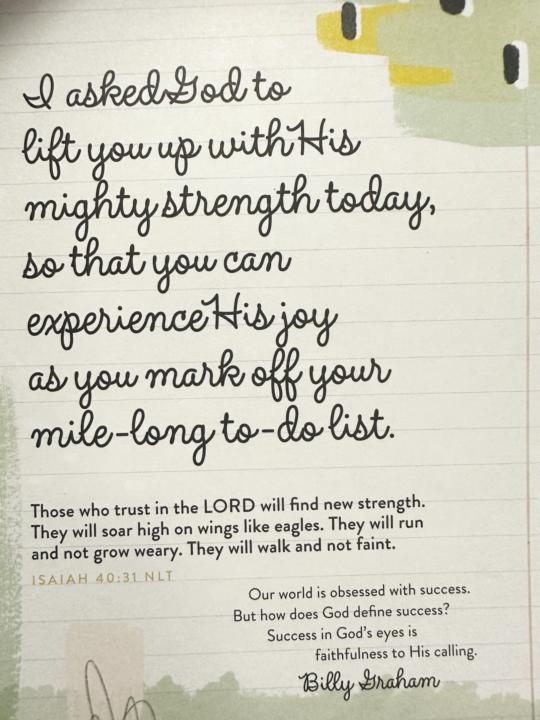 I asked God to
lift you up with His
mighty strength today,
so that you can
experience His joy
as you mark off your
mile-long to-do list.
Those who trust in the LORD will find new strength.
They will soar high on wings like eagles. They will run
and not grow weary. They will walk and not faint.
ISAIAH 40:31 NLT
Our world is obsessed with success.
But how does God define success?
Success in God's eyes is
faithfulness to His calling.
Billy Graham